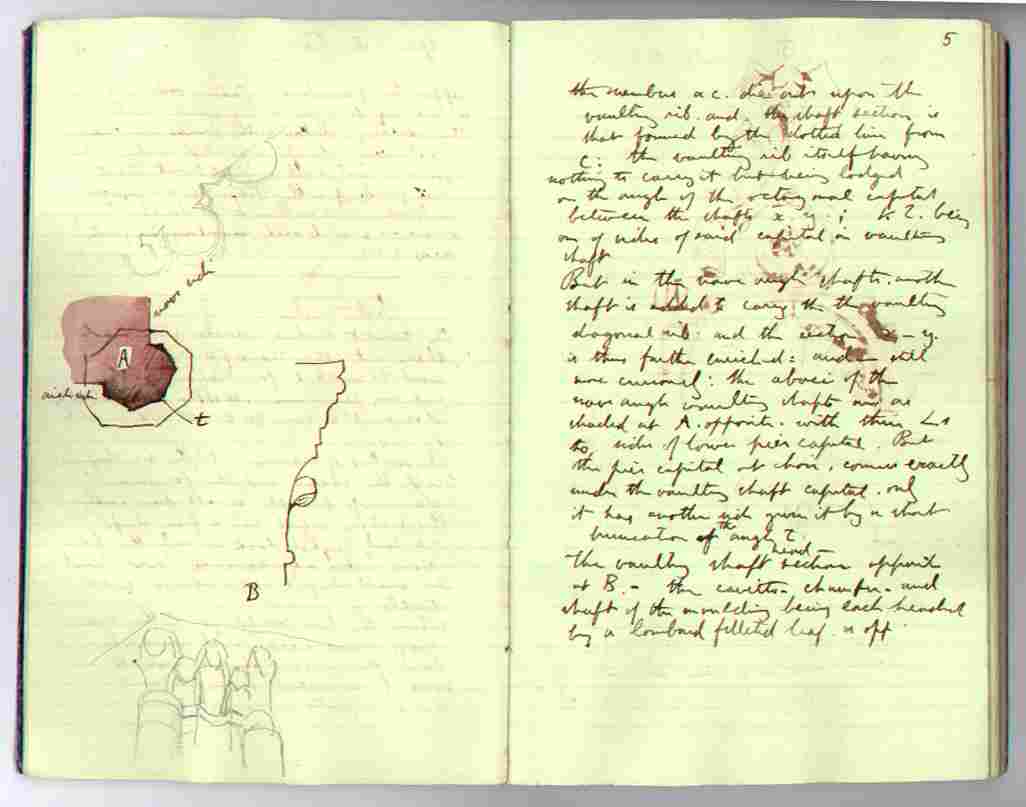 nave side
A
aisle side
t
B
5
the members a c. die out upon the
vaulting rib. and. the shaft section is
that formed by the dotted line from
C: the vaulting rib itself having
nothing to carry it but being lodged
on the angle of the octagonal capital
between the shafts x. y. ; being
one of sides of said capital in vaulting
shaft
But in the nave angle shafts. another
shaft is added to carry the the vaulting
diagonal rib. and the section x - y.
is thus farther enriched: and still
more curiously: the abaci of the
nave angle vaulting shafts are as
shaded at A. opposite. with their Ls
to sides of lower pier capital. But
the pier capital at choir, comes exactly
under the vaulting shaft capital. only
it has another side given it by a short
truncation of the angle t.
The vaulting shaft head section opposite
at B. - the cavetto - chamfer - and
shaft of the moulding being each headed
by a lombard filleted leaf. as opp